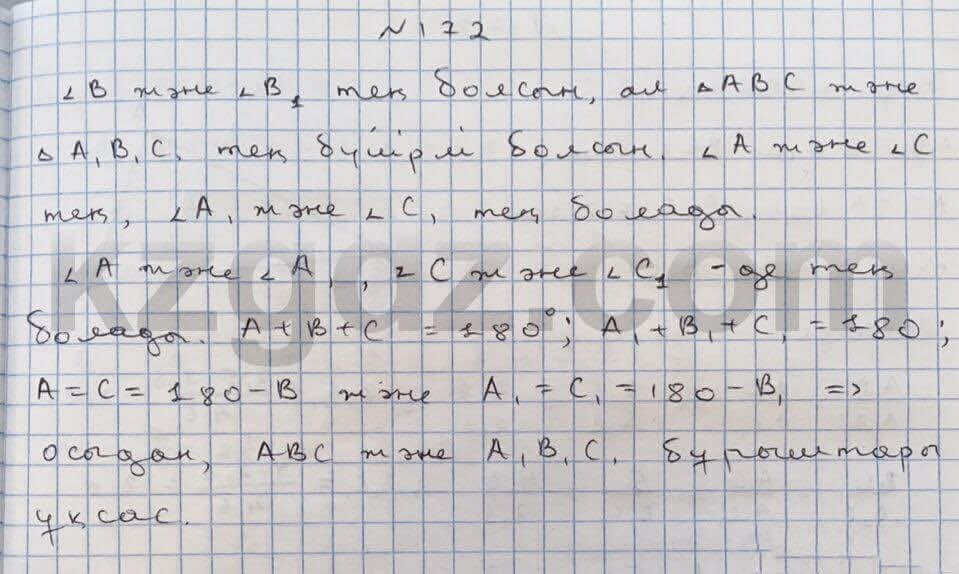 N 172
∠B және ∠B₁ тең болсын, ал △ABC және
△ A₁B₁C₁ тең бүйірлі болсын. ∠A және ∠C
тең, ∠A₁ және ∠C₁ тең болады.
∠A және ∠A₁, ∠C және ∠C₁ -де тең
болады. A+B+C = 180°; A₁+B₁+C₁ = 180;
A=C=180-B және A₁=C₁=180-B₁ =>
осыдан, ABC және A₁B₁C₁ бұрыштары
ұқсас.
kzgdz.com